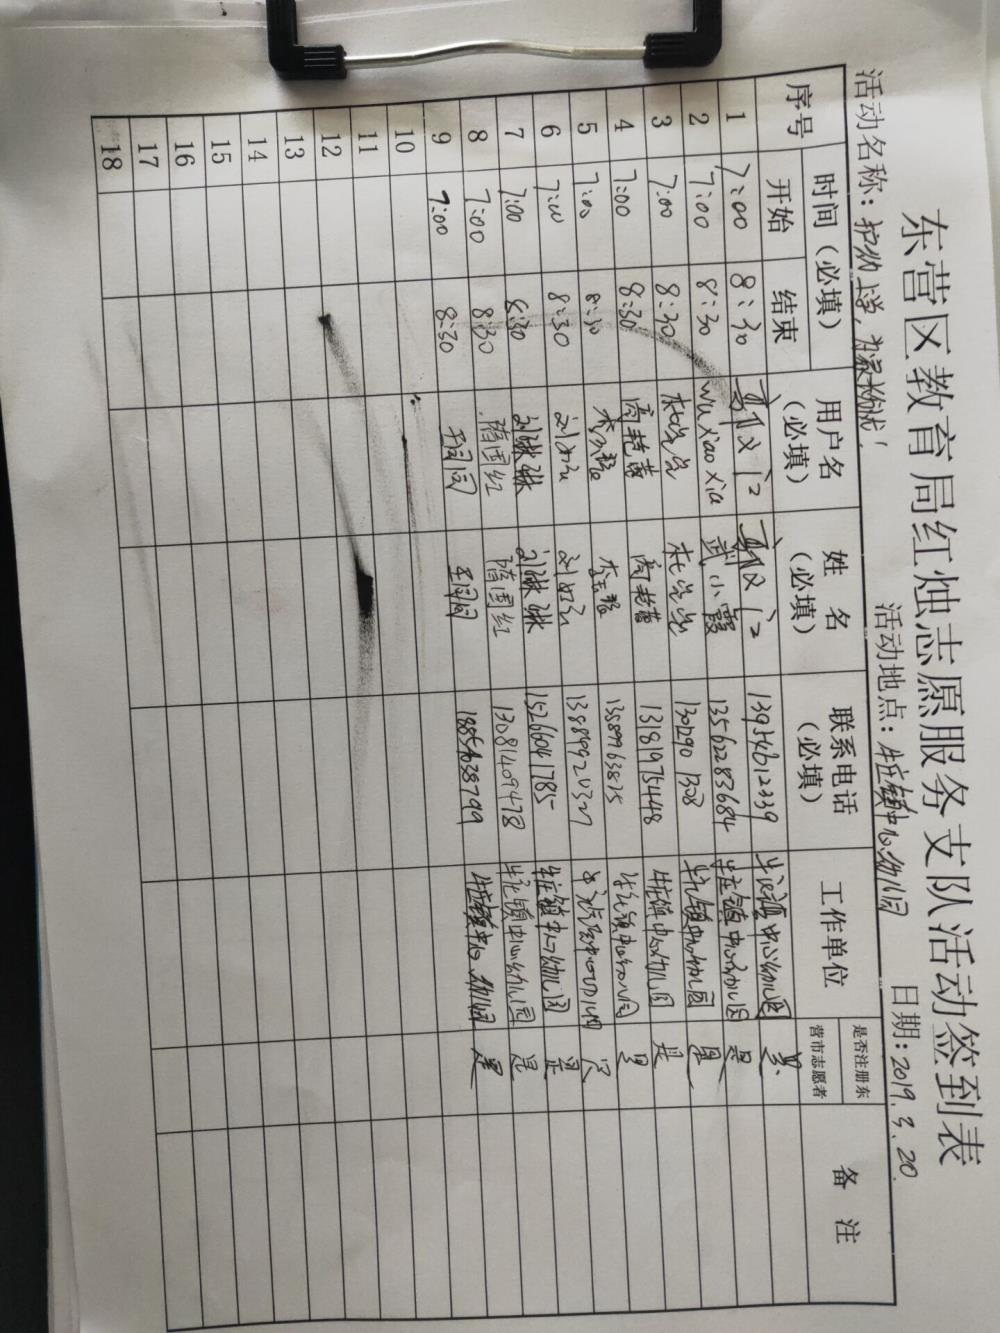 东营区教育局红烛志愿服务支队活动签到表
活动名称：护幼上学，为 活动地点：牛庄镇中心幼儿园 日期：2019.3.20
序号 时间（必填） 用户名（必填） 姓名（必填） 联系电话（必填） 工作单位 是否注册东营市志愿者 备注
开始 结束
1 7:00 8:30 13954612339 牛庄镇中心幼儿园 是
2 7:00 8:30 Wu xiao xia 武小霞 13562283684 牛庄镇中心幼儿园 是
3 7:00 8:30 1308 牛庄镇中心幼儿园 是
4 7:00 8:30 高艳蕾 高艳蕾 13181975448 牛庄镇中心幼儿园 是
5 7:00 8:30 13589963815 牛庄镇中心幼儿园 是
6 7:00 8:30 中心幼儿园 是
7 7:00 8:30 刘琳琳 刘琳琳 15266041785 牛庄镇中心幼儿园 是
8 7:00 8:30 隋国红 隋国红 13081409478 牛庄镇中心幼儿园 是
9 7:00 8:30 王同同 王同同 18854638799 牛庄镇中心幼儿园 是
10
11
12
13
14
15
16
17
18